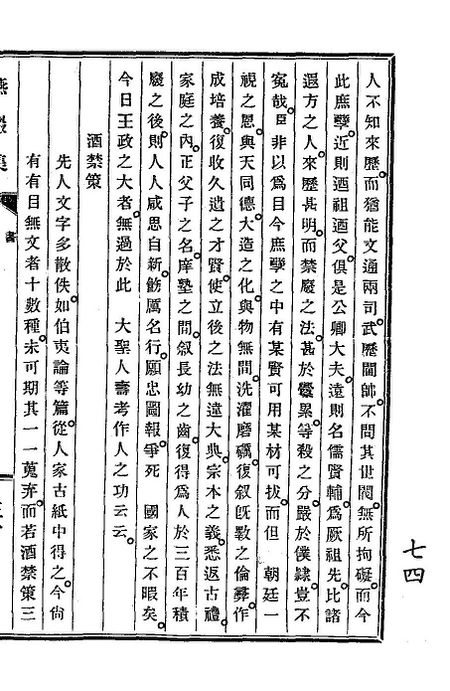 人不知來歷。而猶能文通兩司。武歷閫帥。不問其世閥。無所拘礙。而今
此庶孽。近則迺祖迺父。俱是公卿大夫。遠則名儒賢輔。爲厥祖先。比諸
遐方之人。來歷甚明。而禁廢之法。甚於釁累。等殺之分。嚴於僕隸。豈不
寃哉。臣非以爲目今庶孽之中有某賢可用某材可拔。而但 朝廷一
視之恩。與天同德。大造之化。與物無間。洗濯磨礪。復叙旣斁之倫彝。作
成培養。復收久遺之才賢。使立後之法無違大典。宗本之義。悉返古禮。
家庭之內。正父子之名。庠塾之間。叙長幼之齒。復得爲人於三百年積
廢之後。則人人咸思自新。飭厲名行。願忠圖報。爭死 國家之不暇矣。
今日王政之大者。無過於此 大聖人壽考作人之功云云。
酒禁策
先人文字多散佚。如伯夷論等篇。從人家古紙中得之。今尙
有有目無文者十數種。未可期其一一蒐弃。而若酒禁策三
集
書
七四